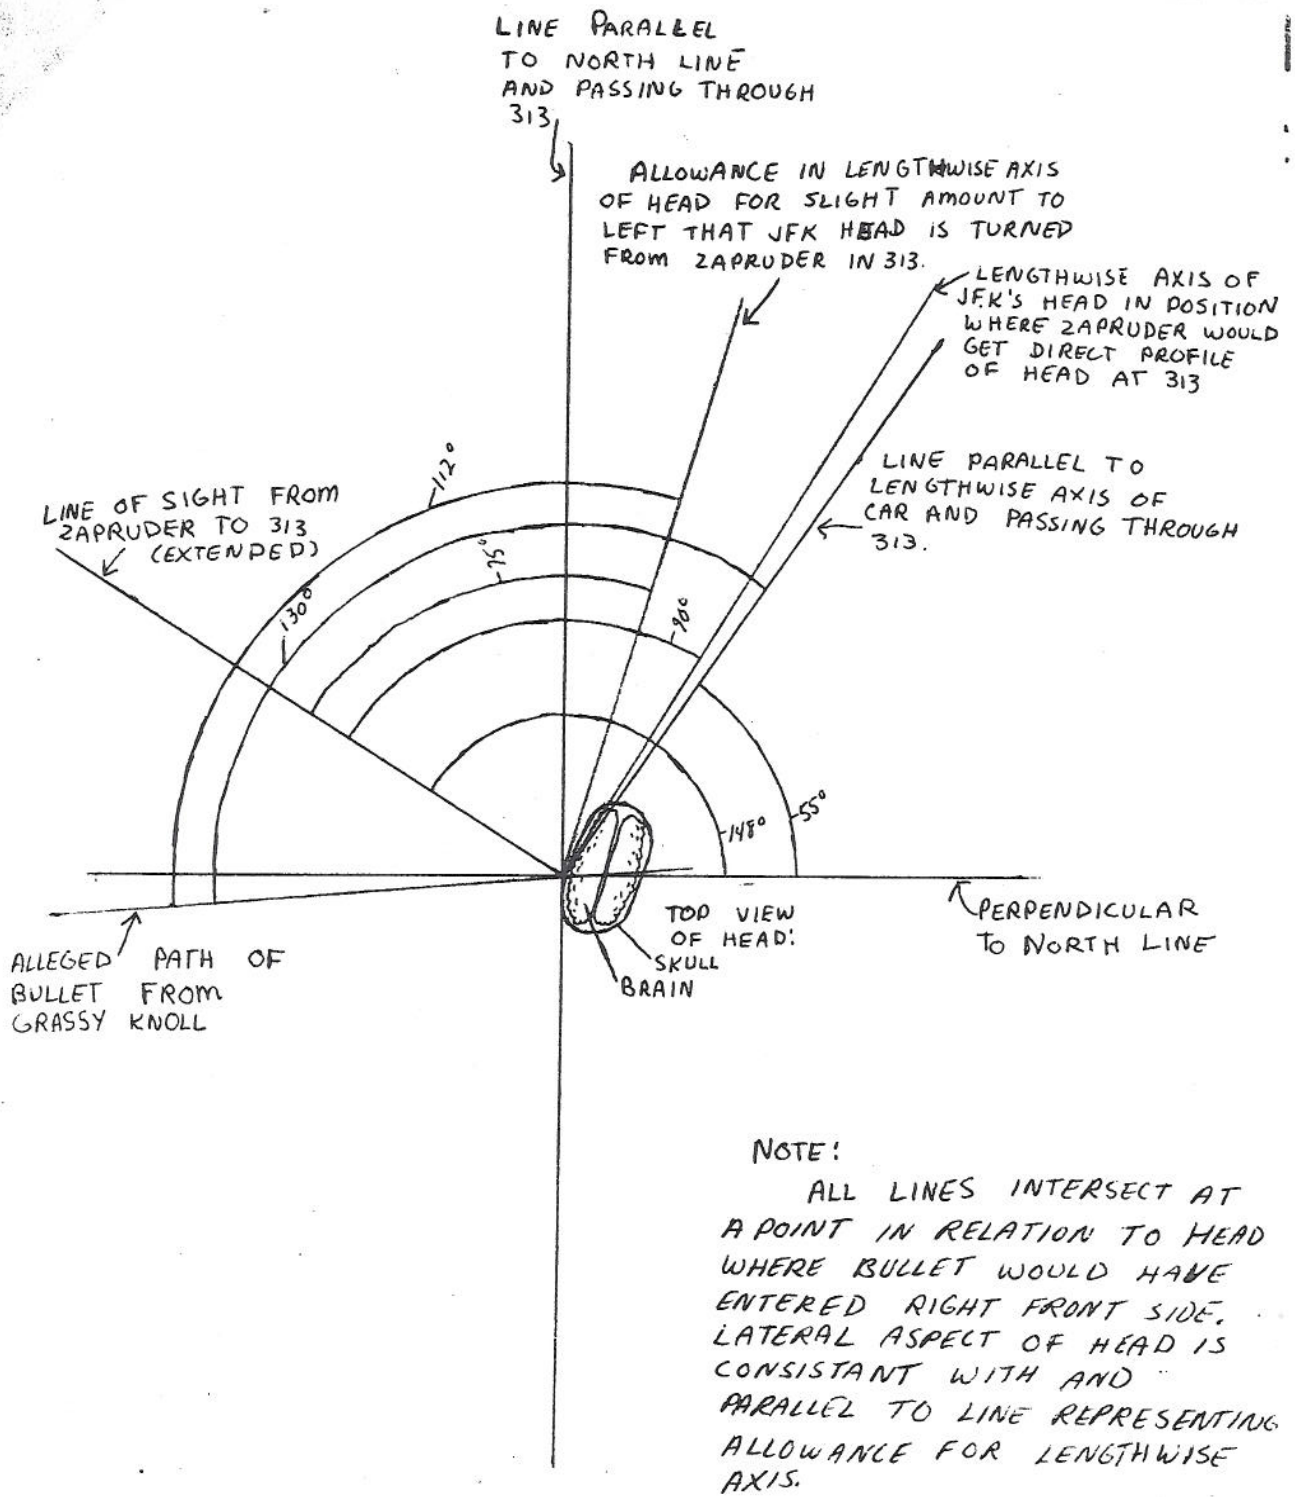 LINE PARALLEL
TO NORTH LINE
AND PASSING THROUGH
313
ALLOWANCE IN LENGTHWISE AXIS
OF HEAD FOR SLIGHT AMOUNT TO
LEFT THAT JFK HEAD IS TURNED
FROM ZAPRUDER IN 313.
LENGTHWISE AXIS OF
JFK'S HEAD IN POSITION
WHERE ZAPRUDER WOULD
GET DIRECT PROFILE
OF HEAD AT 313
LINE PARALLEL TO
LENGTHWISE AXIS OF
CAR AND PASSING THROUGH
313.
LINE OF SIGHT FROM
ZAPRUDER TO 313
(EXTENDED)
112°
75°
130°
90°
55°
148°
TOP VIEW
OF HEAD:
SKULL
BRAIN
PERPENDICULAR
TO NORTH LINE
ALLEGED PATH OF
BULLET FROM
GRASSY KNOLL
NOTE:
ALL LINES INTERSECT AT
A POINT IN RELATION TO HEAD
WHERE BULLET WOULD HAVE
ENTERED RIGHT FRONT SIDE.
LATERAL ASPECT OF HEAD IS
CONSISTANT WITH AND
PARALLEL TO LINE REPRESENTING
ALLOWANCE FOR LENGTHWISE
AXIS.